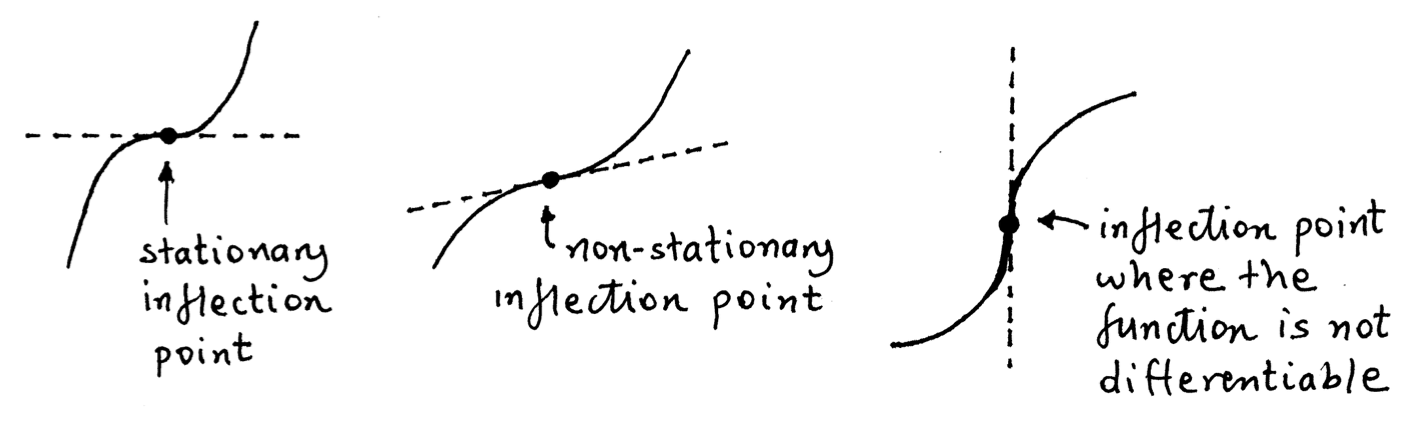 stationary
inflection
point
non-stationary
inflection point
inflection point
where the
function is not
differentiable